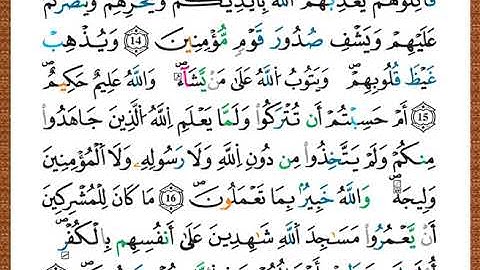 قَاتِلُوهُمْ يُعَذِّبْهُمُ اللَّهُ بِأَيْدِيكُمْ وَيُخْزِهِمْ وَيَنْصُرْكُمْ
عَلَيْهِمْ وَيَشْفِ صُدُورَ قَوْمٍ مُّؤْمِنِينَ ١٤ وَيُذْهِبْ
غَيْظَ قُلُوبِهِمْ وَيَتُوبُ اللَّهُ عَلَى مَن يَّشَآءُ وَاللَّهُ عَلِيمٌ حَكِيمٌ
١٥ أَمْ حَسِبْتُمْ أَن تُتْرَكُوا وَلَمَّا يَعْلَمِ اللَّهُ الَّذِينَ جَاهَدُوا
مِنكُمْ وَلَمْ يَتَّخِذُوا مِن دُونِ اللَّهِ وَلَا رَسُولِهِ وَلَا الْمُؤْمِنِينَ
وَلِيجَةً وَاللَّهُ خَبِيرٌ بِمَا تَعْمَلُونَ ١٦ مَا كَانَ لِلْمُشْرِكِينَ
أَنْ يَّعْمُرُوا مَسَاجِدَ اللَّهِ شَاهِدِينَ عَلَى أَنفُسِهِم بِالْكُفْرِ